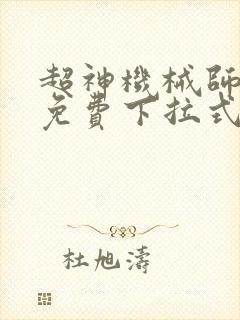 超神機械師
免費下拉式
杜旭濤